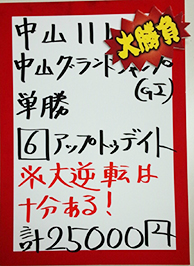 中山11R
大勝負
中山グランドジャンプ
(GI)
単勝
6 アップトゥデイト
※大逆転は
十分ある!
計25000円